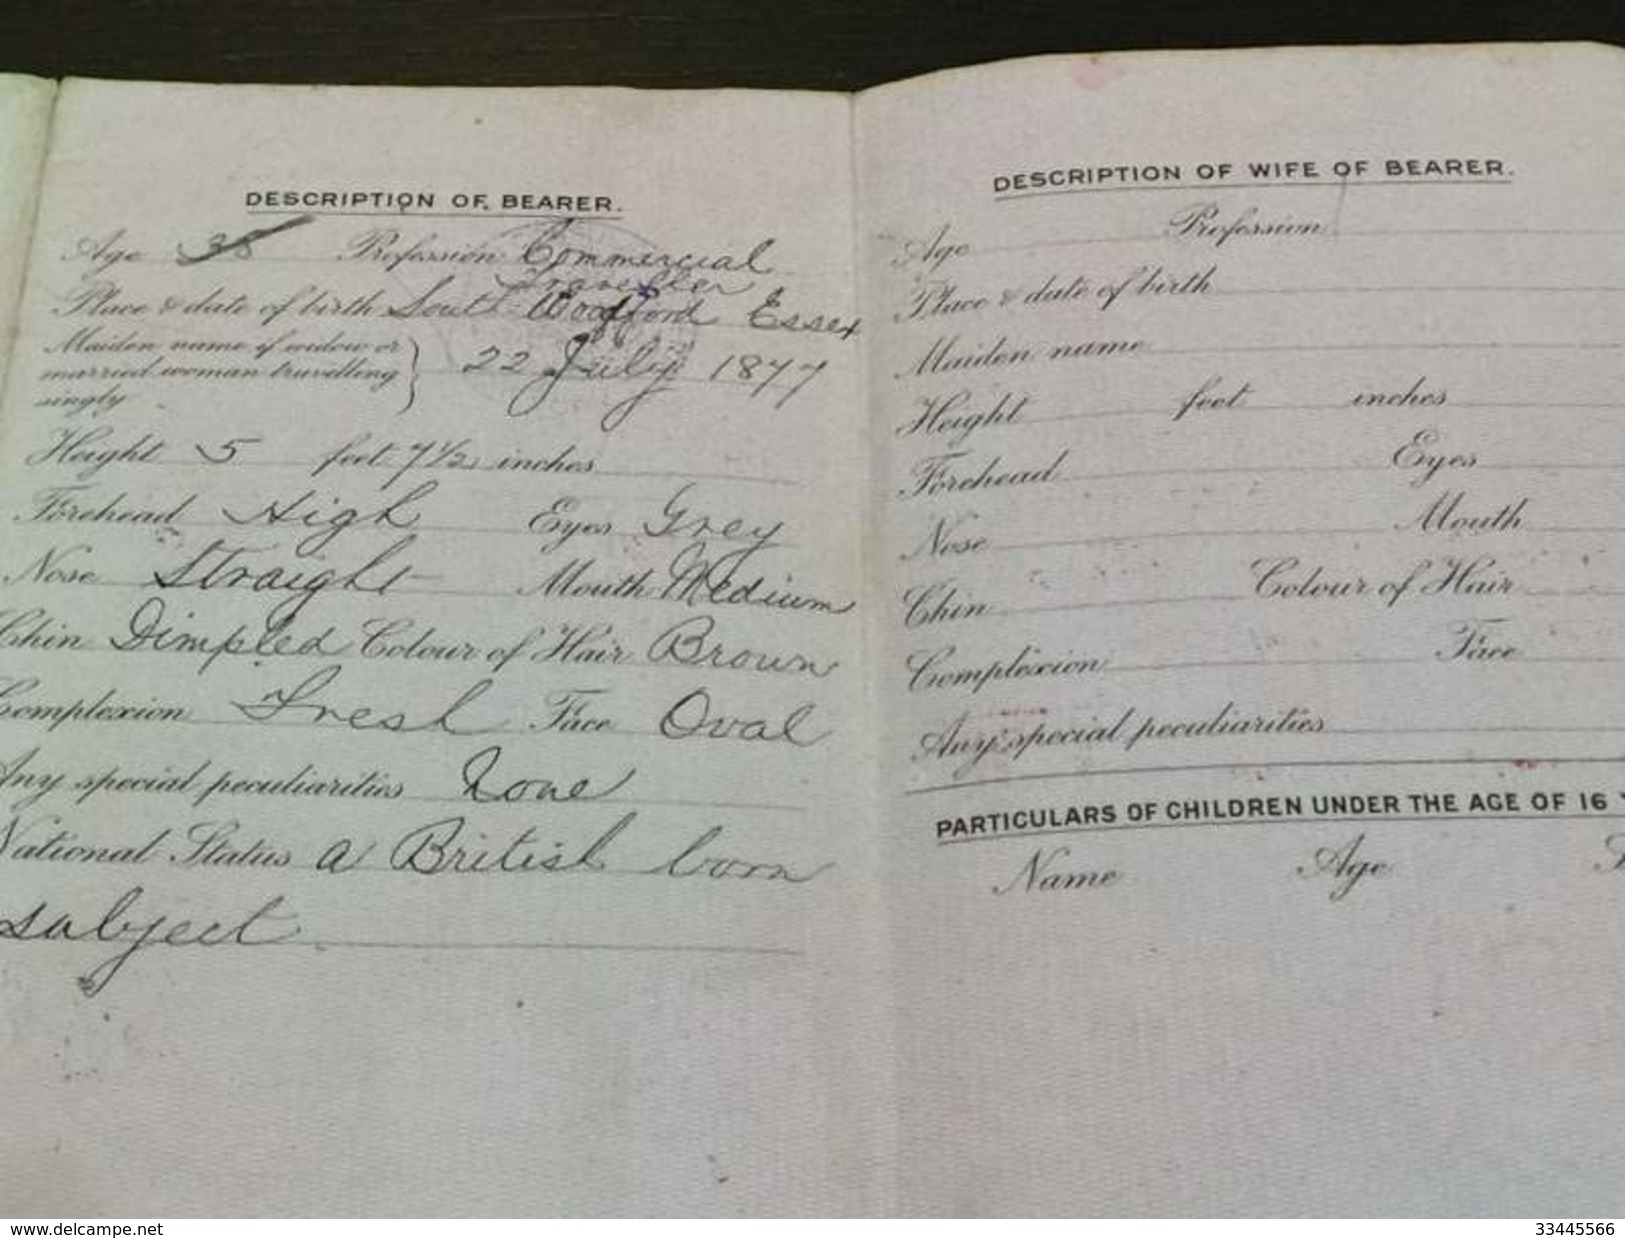 DESCRIPTION OF BEARER.
Age 38 Profession Commercial
Traveller
Place & date of birth South Woodford Essex
Maiden name if widow or
married woman travelling
singly
22 July 1877
Height 5 feet 7½ inches
Forehead High Eyes Grey
Nose Straight Mouth Medium
Chin Dimpled Colour of Hair Brown
Complexion Fresh Face Oval
Any special peculiarities None
National Status a British born
subject
DESCRIPTION OF WIFE OF BEARER.
Age Profession
Place & date of birth
Maiden name
Height feet inches
Forehead Eyes
Nose Mouth
Chin Colour of Hair
Complexion Face
Any special peculiarities
PARTICULARS OF CHILDREN UNDER THE AGE OF 16
Name Age
www.delcampe.net
33445566